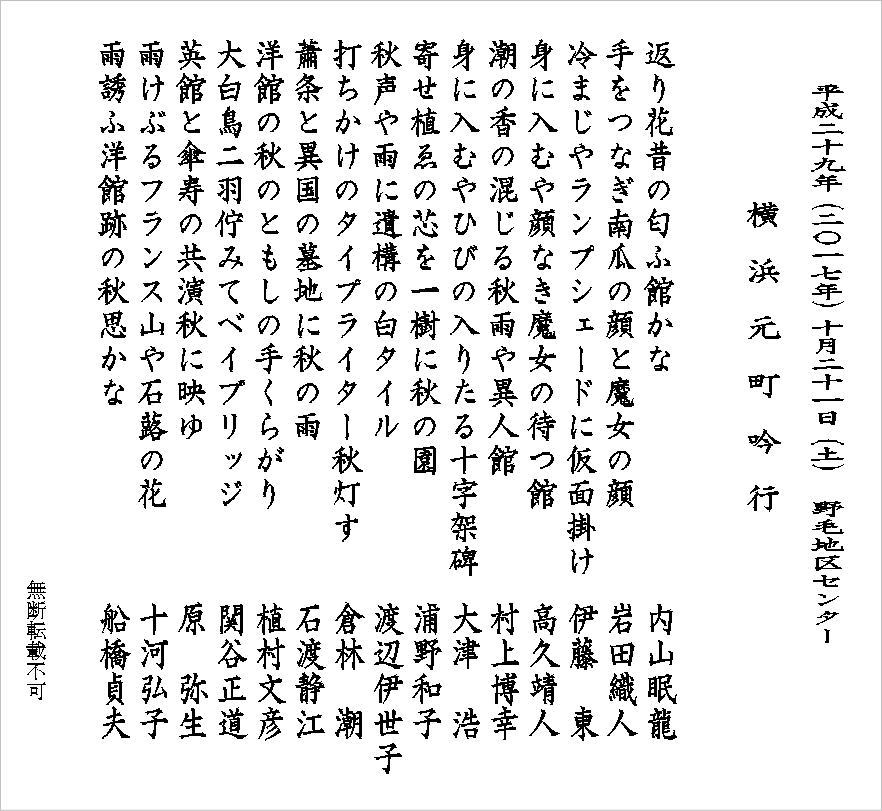 平成二十九年(二〇一七年)十月二十一日(土) 野毛地区センター
横浜元町吟行
返り花昔の匂ふ館かな 内山眠龍
手をつなぎ南瓜の顔と魔女の顔 岩田織人
冷まじやランプシェードに仮面掛け 伊藤東
身に入むや顔なき魔女の待つ館 高久靖人
潮の香の混じる秋雨や異人館 村上博幸
身に入むやひびの入りたる十字架碑 大津浩
寄せ植ゑの芯を一樹に秋の園 浦野和子
秋声や雨に遺構の白タイル 渡辺伊世子
打ちかけのタイプライター秋灯す 倉林潮
蕭条と異国の墓地に秋の雨 石渡静江
洋館の秋のともしの手くらがり 植村文彦
大白鳥二羽佇みてベイブリッジ 関谷正道
英館と傘寿の共演秋に映ゆ 原弥生
雨けぶるフランス山や石蕗の花 十河弘子
雨誘ふ洋館跡の秋思かな 船橋貞夫
無断転載不可